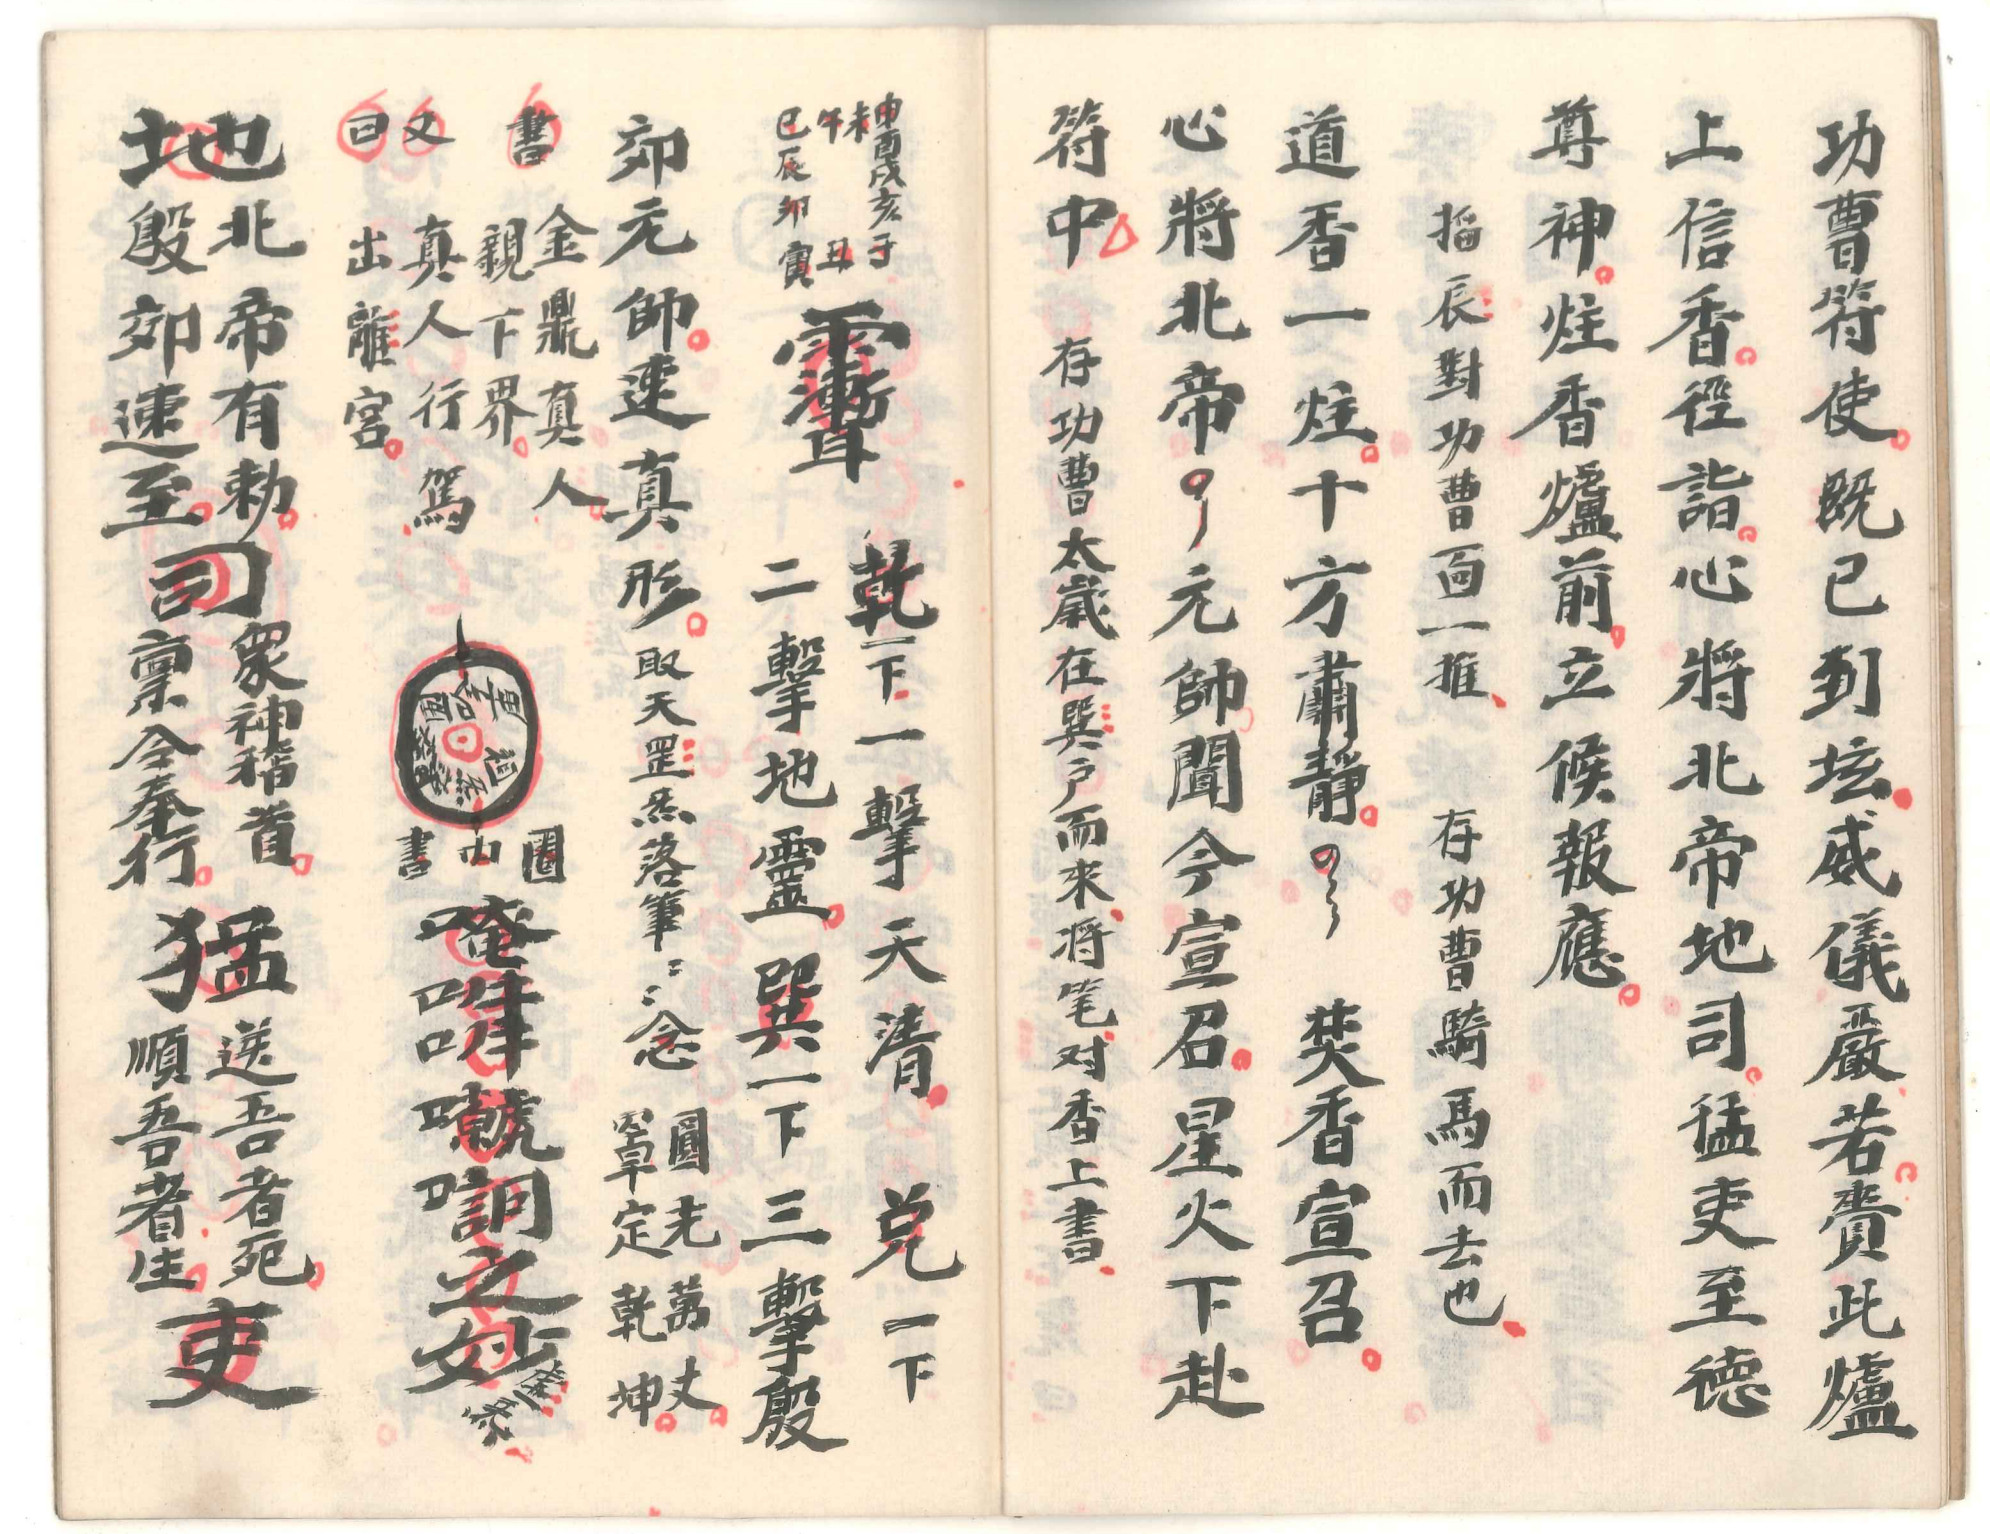 功曹符使既已到坛威儀嚴若賫此爐
上信香徑詣心將北帝地司猛吏至德
尊神炷香爐前立候報應
掐辰對功曹面一推 存功曹騎馬而去也
道香一炷十方肅靜 焚香宣召
心將北帝元帥聞今宣召星火下赴
符中 存功曹太歲在巽户而來将笔对香上書
申酉戌亥子
未 丑
午
巳辰卯寅
乾一下一擊天清 兑一下
二擊地靈巽一下三擊殷
郊元帥速真形取天罡炁落筆念
圓光萬丈
罩定乾坤
書
金鼎真人
親下界
又 真人行 駕
曰 出離宮
圈
内
書
之妙
地北帝有勅
殷郊速至
司
眾神稽首
稟令奉行
猛
逆吾者死
順吾者生
吏